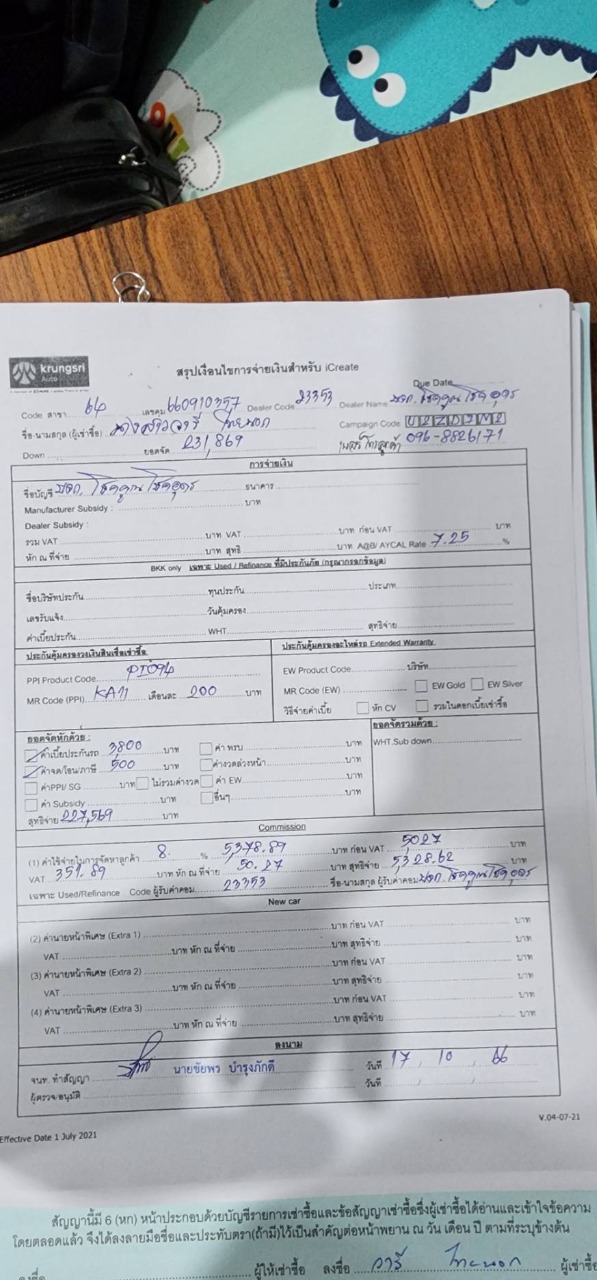 krungsri
Auto
สรุปเงื่อนไขการจ่ายเงินสำหรับ iCreate
Due Date
Code สาขา 64 เลขคุม 660910357 Dealer Code 23353 Dealer Name หจก. โชคคูณโชคอุดร
ชื่อ-นามสกุล (ผู้เช่าซื้อ) นางสาววารี Campaign Code
Down ยอดจัด 231,869 เบอร์โทรลูกค้า 096-8826171
การจ่ายเงิน
ชื่อบัญชี หจก. โชคคูณโชคอุดร ธนาคาร
Manufacturer Subsidy : บาท
Dealer Subsidy :
รวม VAT บาท VAT บาท ก่อน VAT บาท
หัก ณ ที่จ่าย บาท สุทธิ บาท A@B/ AYCAL Rate 7.25 %
BKK only เฉพาะ Used / Refinance ที่มีประกันภัย (กรุณากรอกข้อมูล)
ชื่อบริษัทประกัน ทุนประกัน ประเภท
เลขรับแจ้ง วันคุ้มครอง
ค่าเบี้ยประกัน WHT สุทธิจ่าย
ประกันคุ้มครองวงเงินสินเชื่อเช่าซื้อ ประกันคุ้มครองอะไหล่รถ Extended Warranty
PPI Product Code PI094 EW Product Code บริษัท
MR Code (PPI) KA11 เดือนละ 200 บาท MR Code (EW) EW Gold EW Silver
วิธีจ่ายค่าเบี้ย หัก CV รวมในดอกเบี้ยเช่าซื้อ
ยอดจัดหักด้วย : ยอดจัดรวมด้วย :
ค่าเบี้ยประกันรถ 3,800 บาท ค่า พรบ บาท WHT.Sub down
ค่าจด/โอน/ภาษี 500 บาท ค่างวดล่วงหน้า บาท
ค่าPPI/ SG บาท ไม่รวมค่างวด ค่า EW บาท
ค่า Subsidy บาท อื่นๆ บาท
สุทธิจ่าย 227,569 บาท
Commission
(1) ค่าใช้จ่ายในการจัดหาลูกค้า 8. % 5,378.89 บาท ก่อน VAT 5027 บาท
VAT 351.89 บาท หัก ณ ที่จ่าย 50.27 บาท สุทธิจ่าย 5,328.62 บาท
เฉพาะ Used/Refinance Code ผู้รับค่าคอม 23353 ชื่อ-นามสกุล ผู้รับค่าคอม หจก. โชคคูณโชคอุดร
New car
(2) ค่านายหน้าพิเศษ (Extra 1) บาท ก่อน VAT บาท
VAT บาท หัก ณ ที่จ่าย บาท สุทธิจ่าย บาท
(3) ค่านายหน้าพิเศษ (Extra 2) บาท ก่อน VAT บาท
VAT บาท หัก ณ ที่จ่าย บาท สุทธิจ่าย บาท
(4) ค่านายหน้าพิเศษ (Extra 3) บาท ก่อน VAT บาท
VAT บาท หัก ณ ที่จ่าย บาท สุทธิจ่าย บาท
ลงนาม
จนท. ทำสัญญา นายชัยพร บำรุงภักดี วันที่ 17 , 10 , 66
ผู้ตรวจ/อนุมัติ วันที่ , ,
Effective Date 1 July 2021
V.04-07-21
สัญญานี้มี 6 (หก) หน้าประกอบด้วยบัญชีรายการเช่าซื้อและข้อสัญญาเช่าซื้อซึ่งผู้เช่าซื้อได้อ่านและเข้าใจข้อความ
โดยตลอดแล้ว จึงได้ลงลายมือชื่อและประทับตรา(ถ้ามี)ไว้เป็นสำคัญต่อหน้าพยาน ณ วัน เดือน ปี ตามที่ระบุข้างต้น
ลงชื่อ ผู้ให้เช่าซื้อ ลงชื่อ วารี ผู้เช่าซื้อ